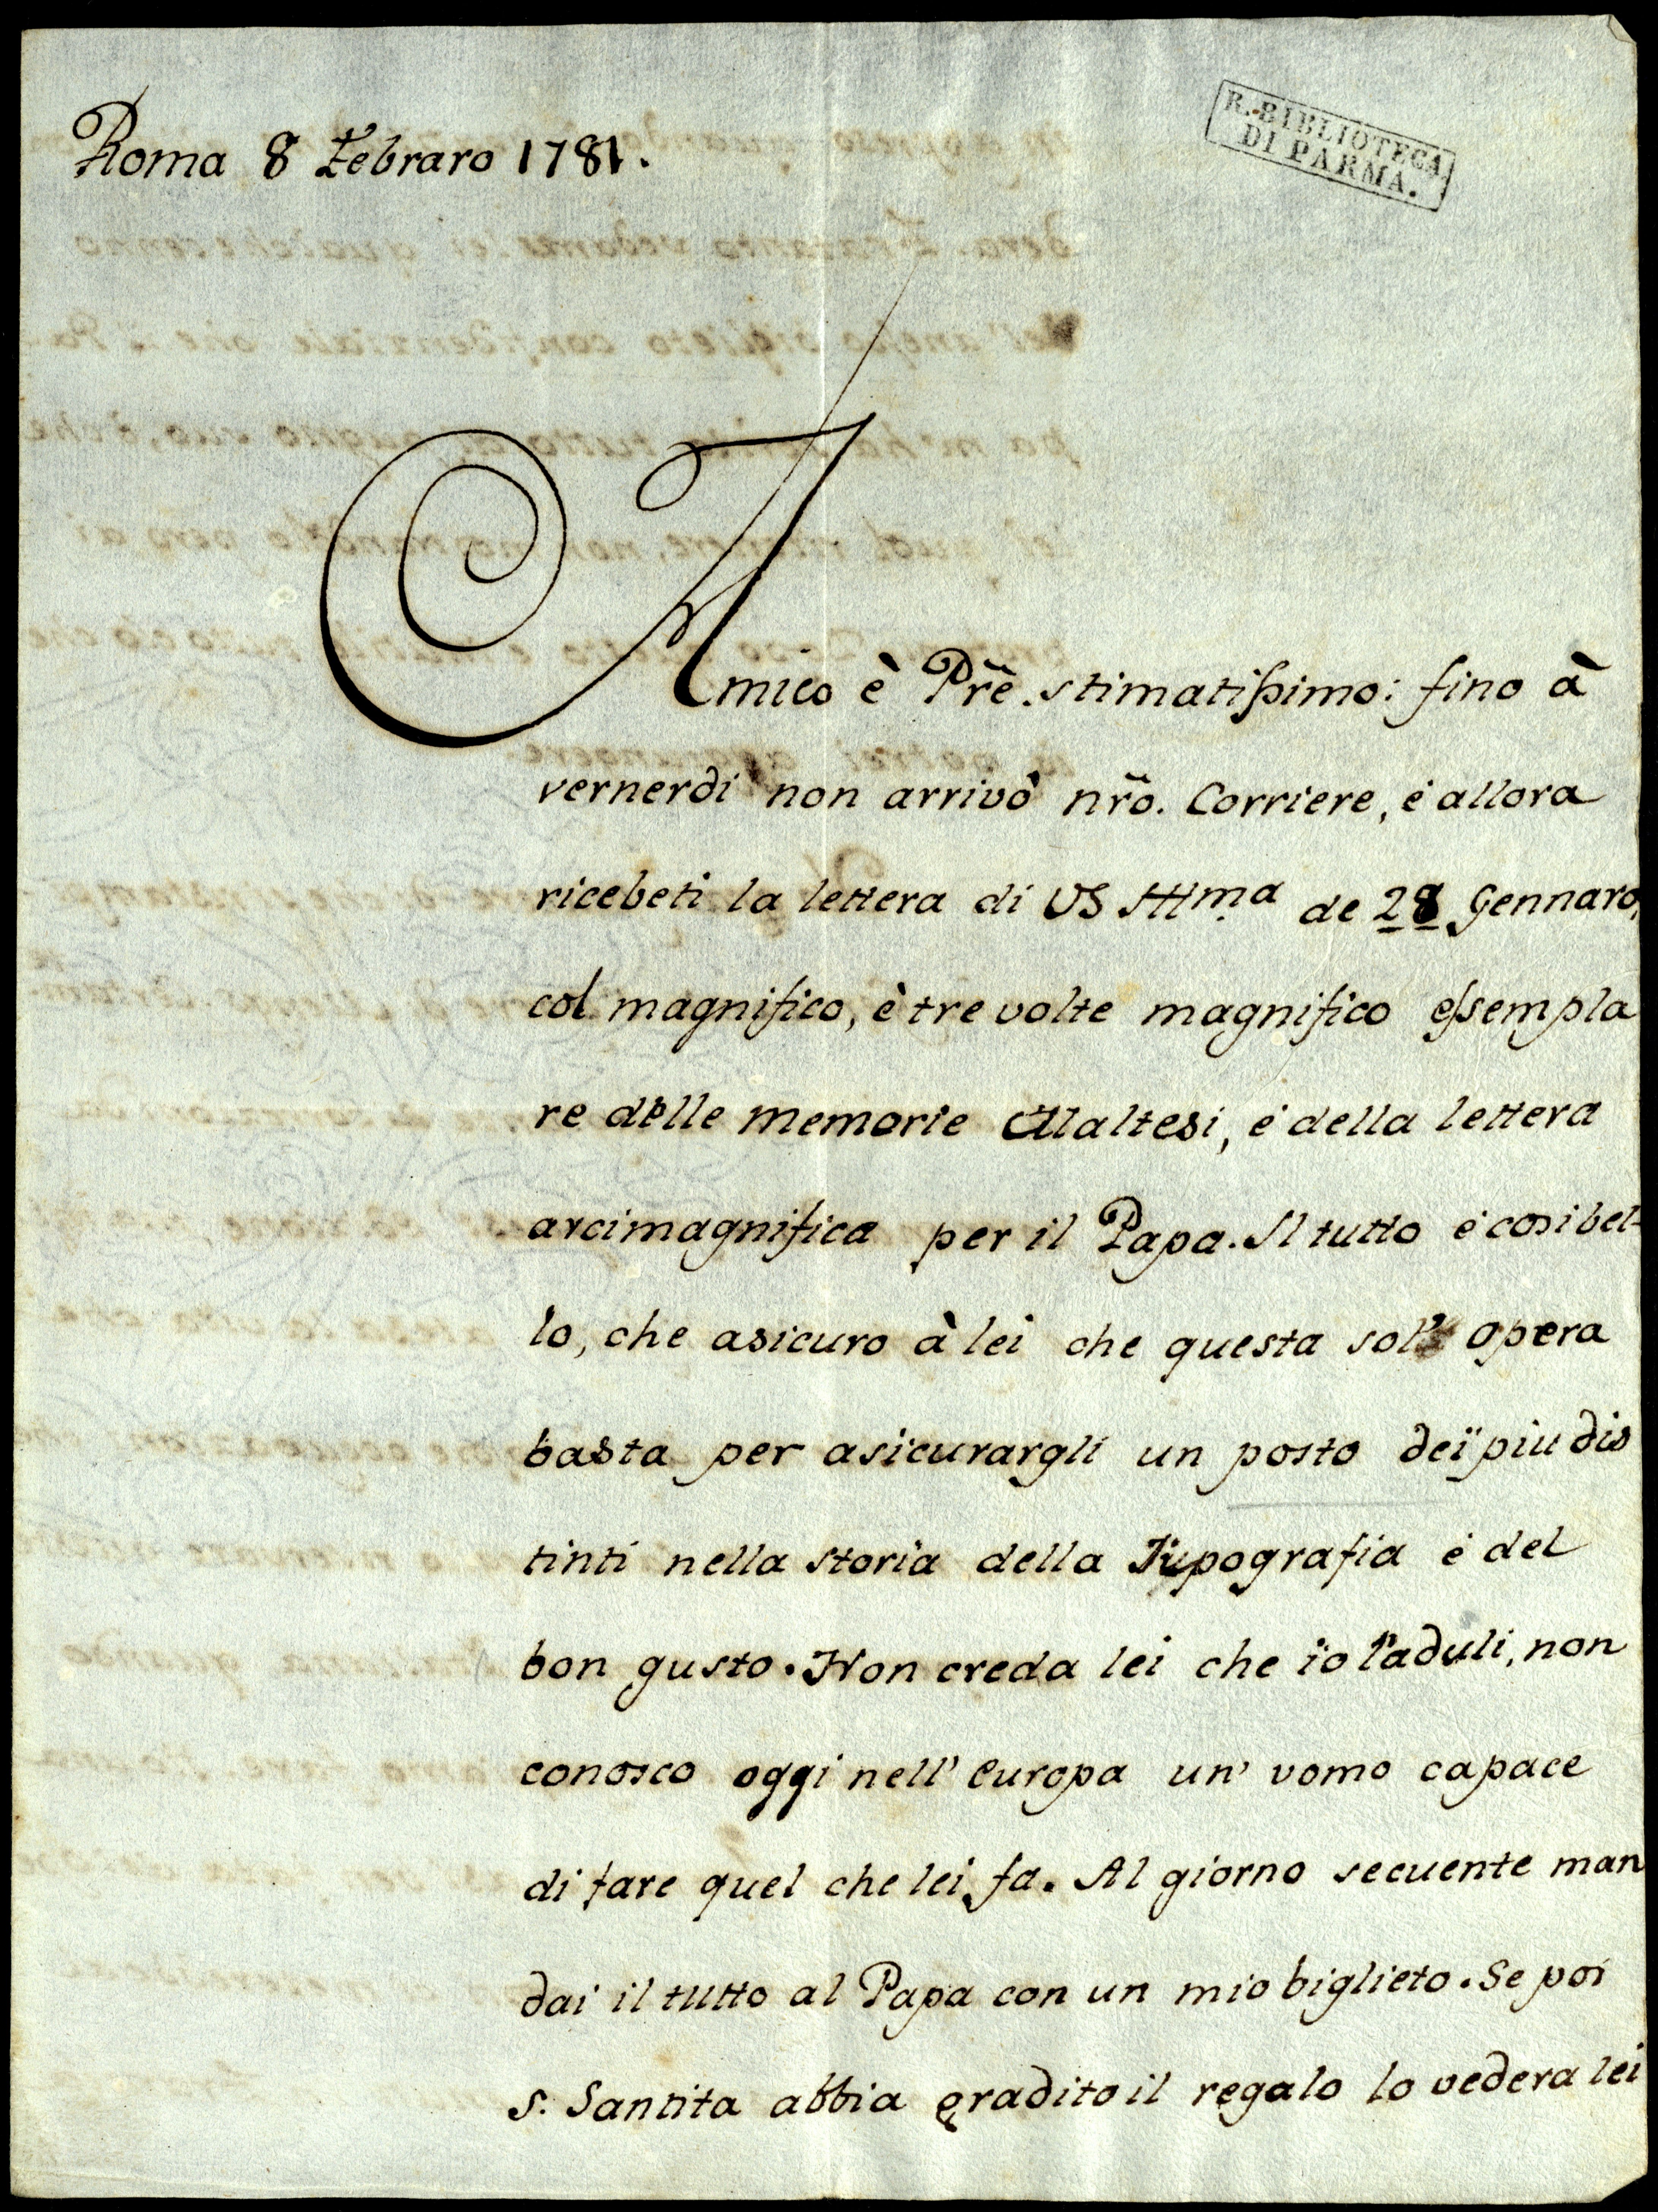 Roma 8 Febraro 1781.
R. BIBLIOTECA
DI PARMA.
Amico è Pr̃e. stimatissimo: fino à
vernerdi non arrivò nr̃o. Corriere, è allora
ricebeti la lettera di VS Illma de 28 Gennaro,
col magnifico, è tre volte magnifico essempla
re delle memorie Maltesi, è della lettera
arcimagnifica per il Papa. Il tutto è cosi bel-
lo, che asicuro à lei che questa sol' opera
basta per asicurargli un posto dei piu dis
tinti nella storia della Tipografia è del
bon gusto. Non creda lei che io l'aduli, non
conosco oggi nell' Europa un' vomo capace
di fare quel che lei fa. Al giorno secuente man
dai il tutto al Papa con un mio biglieto. Se poi
S. Santita abbia gradito il regalo lo vedera lei